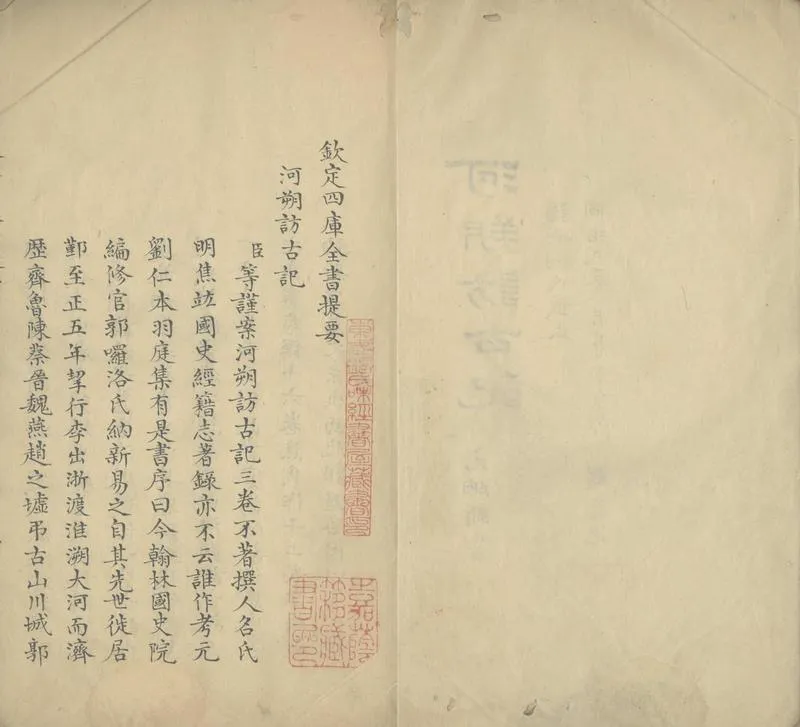 欽定四庫全書提要
河朔訪古記
臣等謹案河朔訪古記三卷不著撰人名氏
明焦竑國史經籍志著録亦不云誰作考元
劉仁本羽庭集有是書序曰今翰林國史院
編修官郭囉洛氏納新易之自其先世徙居
鄞至正五年挈行李出浙渡淮溯大河而濟
歴齊魯陳蔡晉魏燕趙之墟弔古山川城郭
味經書屋藏書印
嘉蔭
簃藏
書印